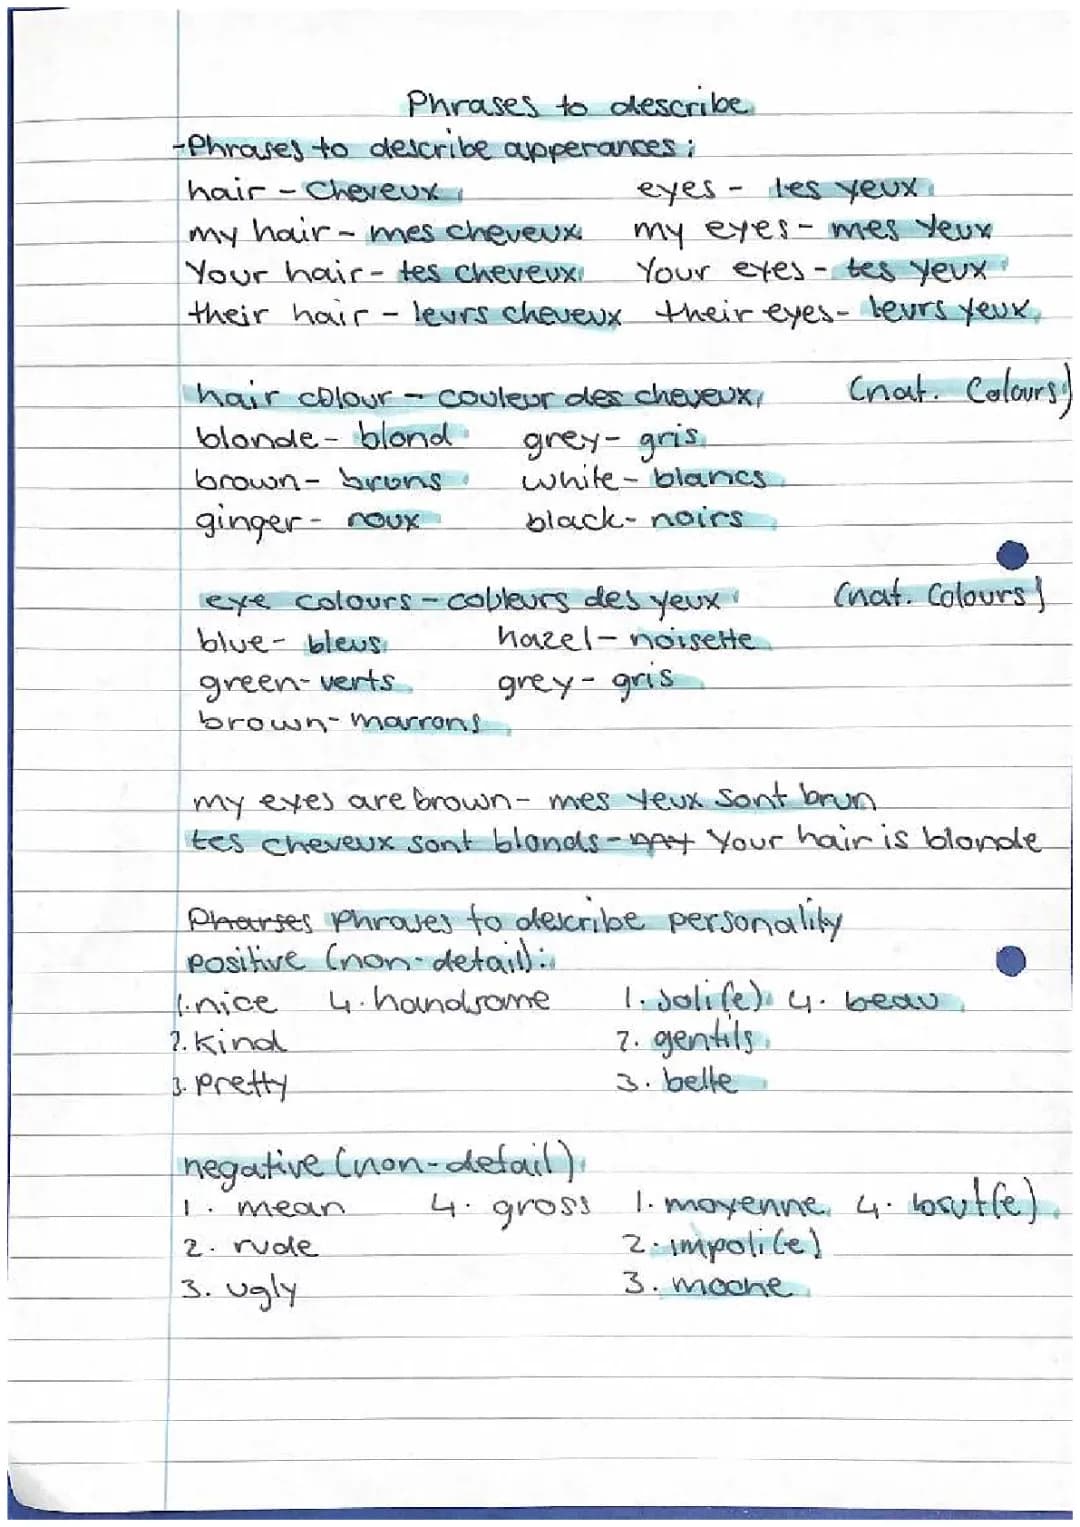 Phrases to describe
-Phrases to describe apperances:
hair - Cheveux eyes - les yeux
my hair - mes cheveux my eyes - mes yeux
Your hair - tes cheveux Your eyes - tes yeux
their hair - leurs cheveux their eyes - leurs yeux
hair colour - couleur des cheveux (nat. Colours)
blonde - blond grey - gris
brown - bruns white - blancs
ginger - roux black - noirs
eye colours - couleurs des yeux (nat. Colours)
blue - bleus hazel - noisette
green - verts grey - gris
brown - marrons
my eyes are brown - mes yeux sont brun
tes cheveux sont blonds - Your hair is blonde
Pharses phrases to describe personality
positive (non-detail):
1. nice 4. handsome 1. Joli(e) 4. beau
2. kind 2. gentils
3. pretty 3. belle
negative (non-detail)
1. mean 4. gross 1. moyenne 4. brut(e)
2. rude 2. impoli(e)
3. ugly 3. moche